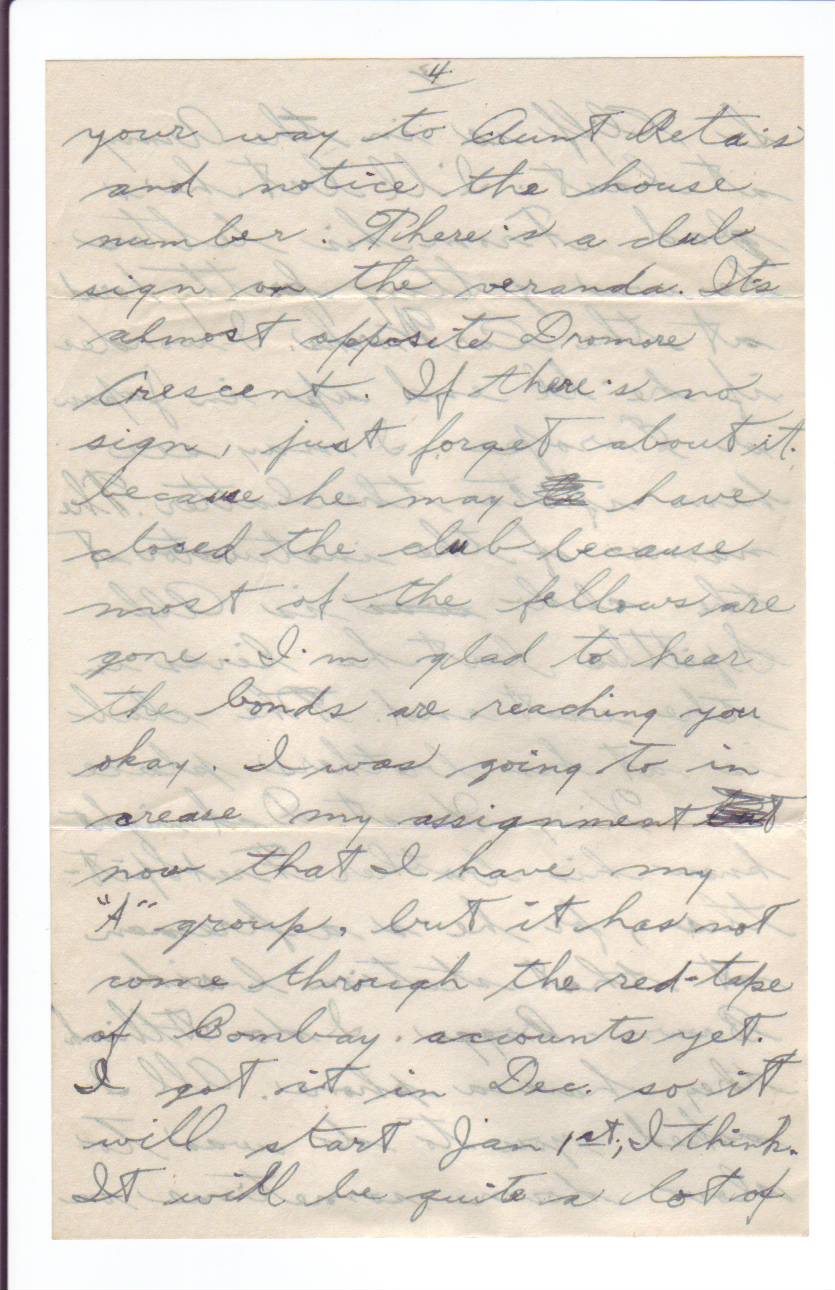 4
your way to Aunt Reta's
and notice the house
number. There's a club
sign on the veranda. It's
almost opposite Dromore
Crescent. If there's no
sign, just forget about it.
because he may have
closed the club because
most of the fellows are
gone. I'm glad to hear
the bonds are reaching you
okay. I was going to in
crease my assignment
now that I have my
"A" group, but it has not
come through the red-tape
of Bombay accounts yet.
I got it in Dec. so it
will start Jan 1st, I think.
It will be quite a lot of